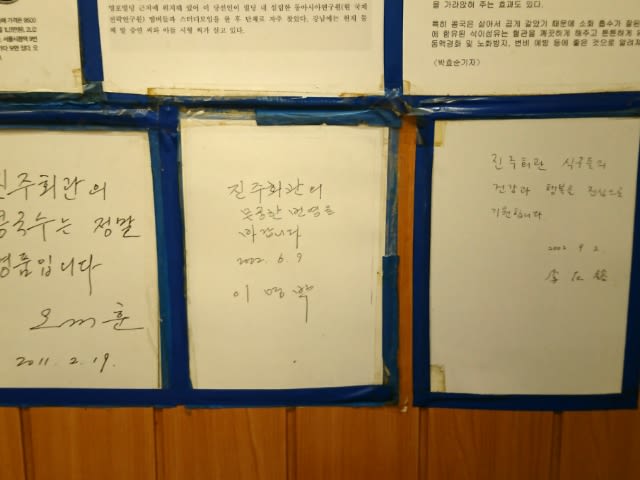 가격은 9500
영포빌딩 근처에 위치해 있어 이 당선인이 빌딩 내 설립한 동아시아연구원(현 국제
전략연구원) 멤버들과 스터디모임을 한 후 단체로 자주 찾았다. 강남에는 현지
을 가라앉혀 주는 효과도 있다.
특히 콩국은 삶아서 곱게 갈았기 때문에 소화 흡수가 잘은
에 함유된 식이섬유는 혈관을 깨끗하게 해주고 튼튼하게
동맥경화 및 노화방지, 변비 예방 등에 좋은 것으로 알려져
(박효순기자)
진주회관의
콩국수는 정말
명품입니다
오세훈
2011. 2. 19.
진주회관의
무궁한 번영을
바랍니다
2002. 6. 9
이명박
진주회관 식구들의
건강과 행복을 진심으로
기원합니다
2002 9 2.